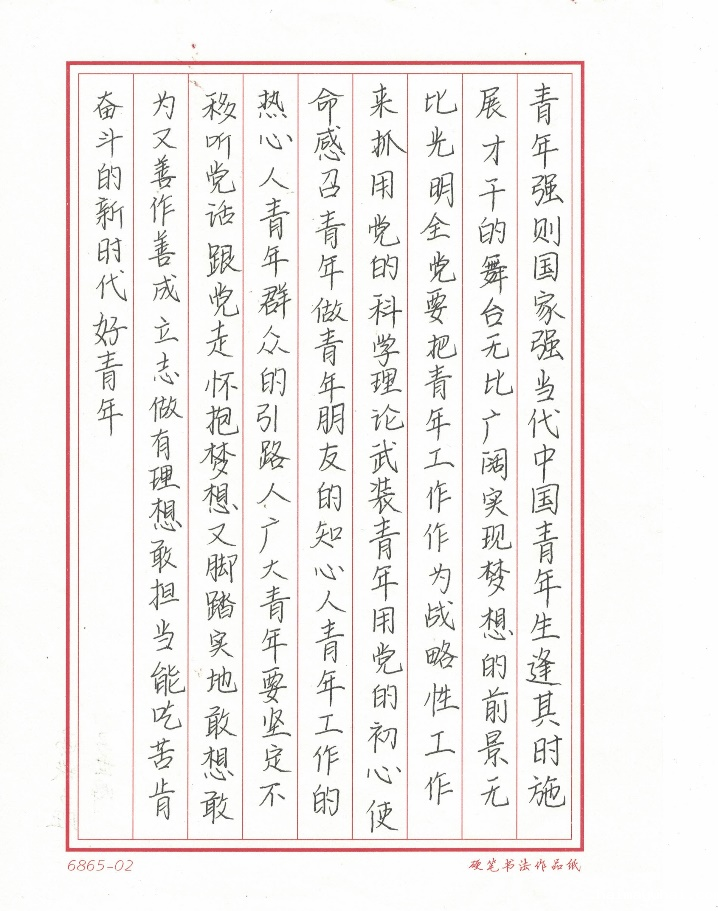 青年强则国家强当代中国青年生逢其时施
展才干的舞台无比广阔实现梦想的前景无
比光明全党要把青年工作作为战略性工作
来抓用党的科学理论武装青年用党的初心使
命感召青年做青年朋友的知心人青年工作的
热心人青年群众的引路人广大青年要坚定不
移听党话跟党走怀抱梦想又脚踏实地敢想敢
为又善作善成立志做有理想敢担当能吃苦肯
奋斗的新时代好青年
6865-02
硬笔书法作品纸